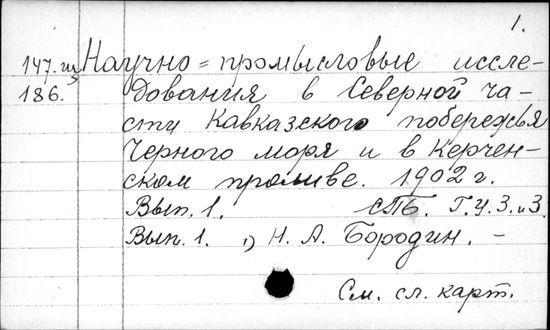 1.
147. III Научно=промысловые иссле-
186. дования в Северной ча-
сти Кавказского побережья
Черного моря и в Керчен-
ском проливе. 1902 г.
Вып. 1. СПБ. Г.У.З.и З.
Вып. 1. 1) Н. А. Бородин. –
См. сл. карт.